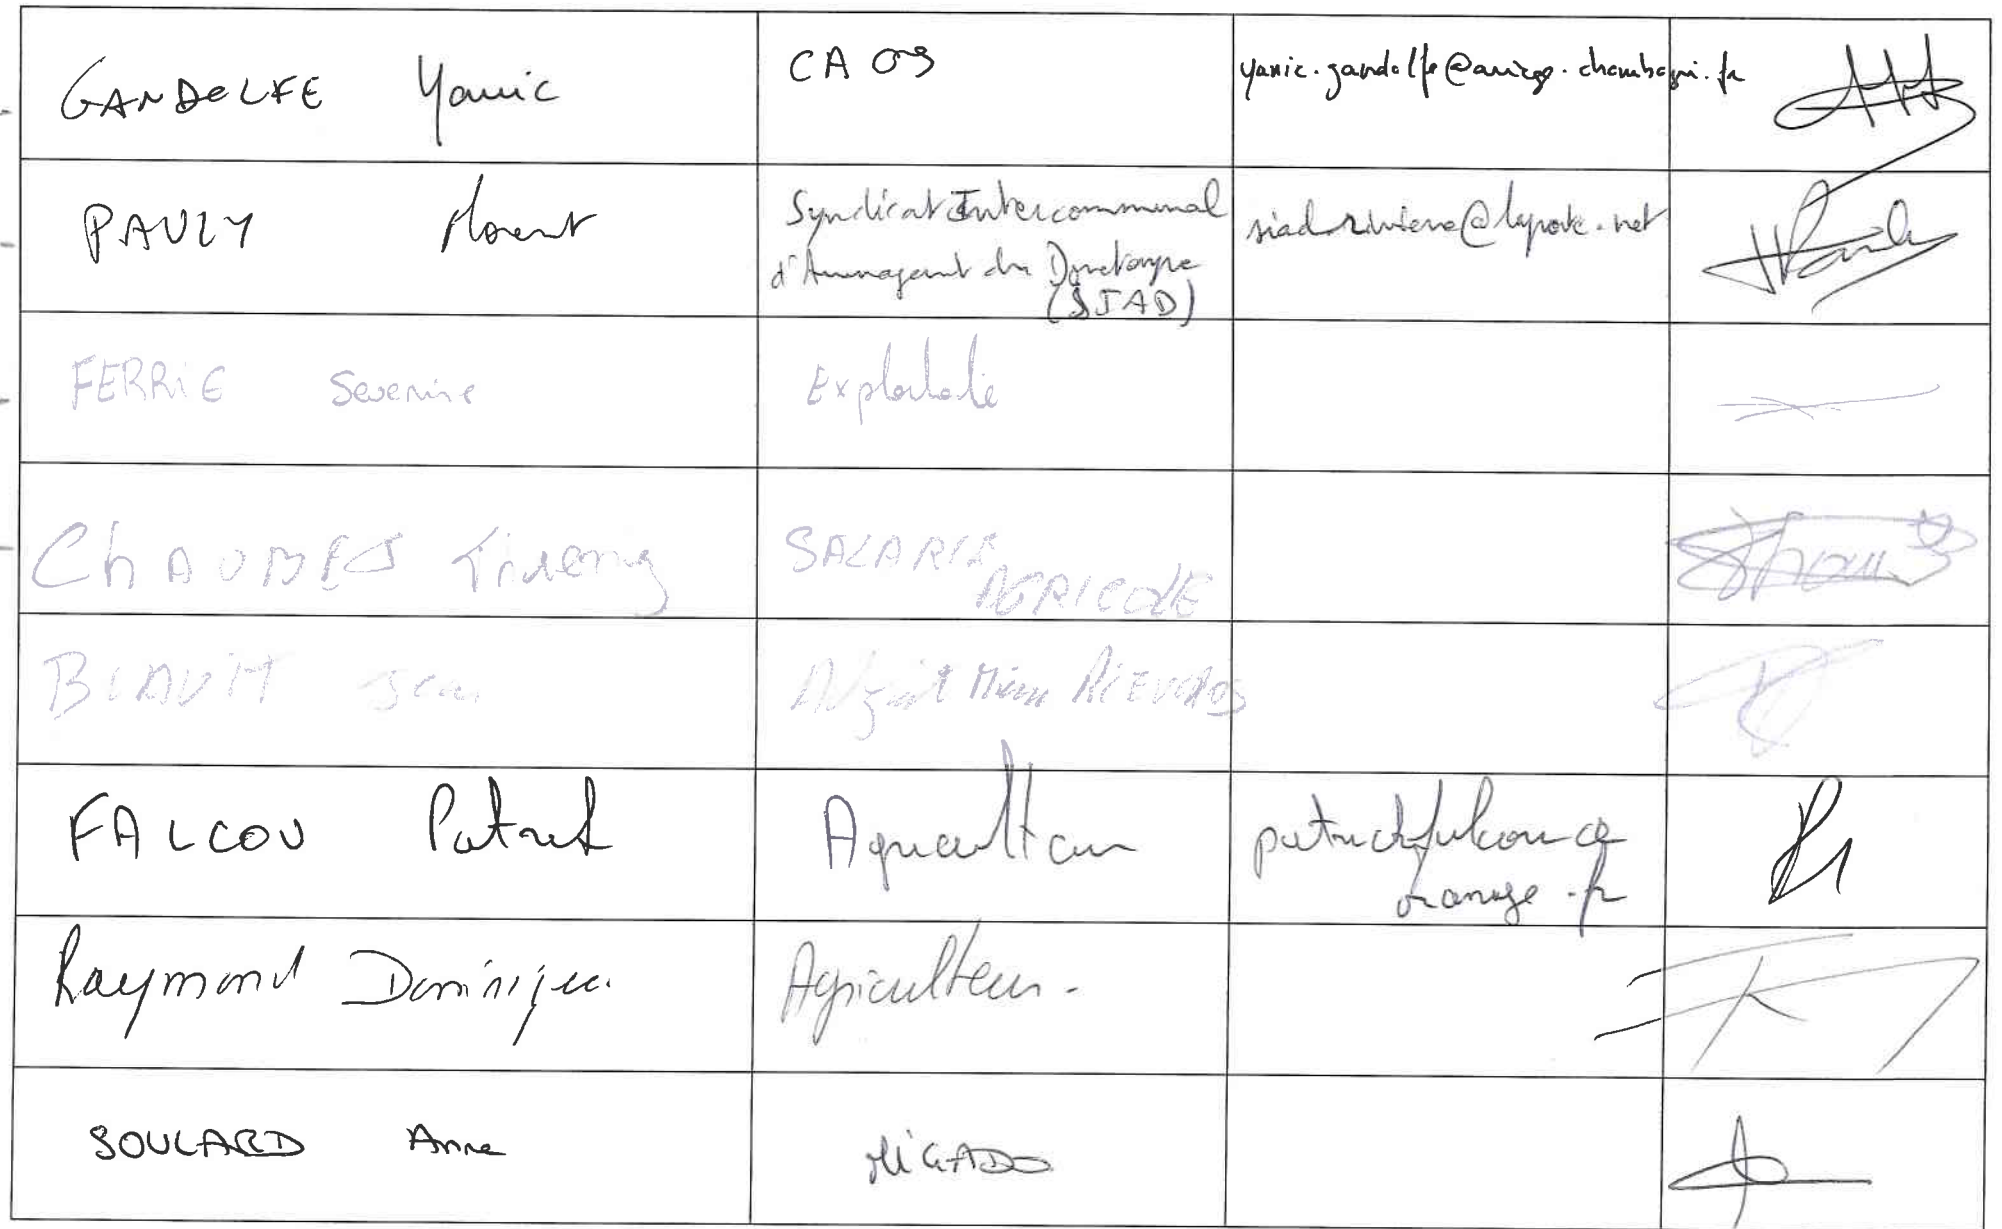 GANDOLFE Yanic CA 09 yanic.gandolfe@ariege.chambagri.fr
PAULY Florent Syndicat Intercommunal
d'Aménagement du Douctouyre
(SIAD)
siad.riviere@laposte.net
FERRIE Severine Exploitante
CHAUBET Thierry SALARIE
AGRICOLE
Jean Adjoint Mairie RIEUCROS
FALCOU Patrick Agriculteur patrickfalcou@
orange.fr
Raymond Dominique Agriculteur.
SOULARD Anne MIGADO